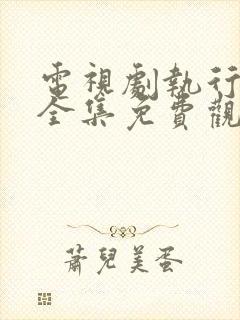 電視劇執行
全集免費觀
蕭兒美蛋